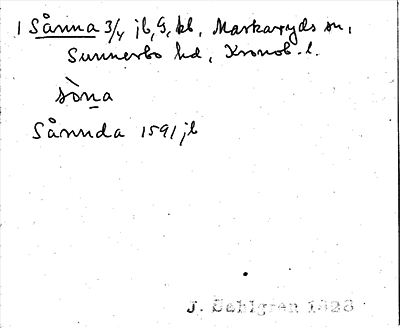 1 Sånna 3/4 jb, G, kb, Markaryds sn,
Sunnerbo hd, Kronob. l.
sòna
Sånnda 1591 jb
J. Sahlgren 1928